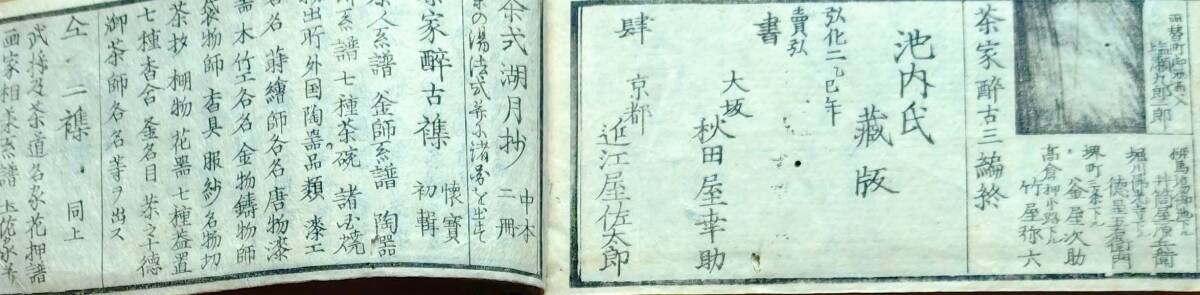 両替町御池西入
塩瀬九郎二郎
井筒屋源兵衛
堀川
徳屋吉左衛門
堺町三条下ル
釜屋次助
高倉押小路下ル
竹屋弥六
茶家醉古三編終
池内氏
藏版
弘化二乙巳年
賣弘
書
肆
大坂
秋田屋幸助
京都
近江屋佐太郎
茶式湖月抄 中本二冊
茶の湯法式并に諸器を出す
茶家醉古襍 懐寶初輯
茶人系譜 釜師系譜 陶器
師系譜七種茶碗 諸国焼
物出所外国陶器品類 漆工
各名 蒔繪師各名唐物漆
器木竹工各名金物鑄物師
袋物師 香具服紗名物切
茶杓 棚物花器七種蓋置
七種香合釜名目 茶之十德
御茶師各名等ヲ出ス
仝 二襍 同上
武将及茶道名家花押譜
画家相系譜